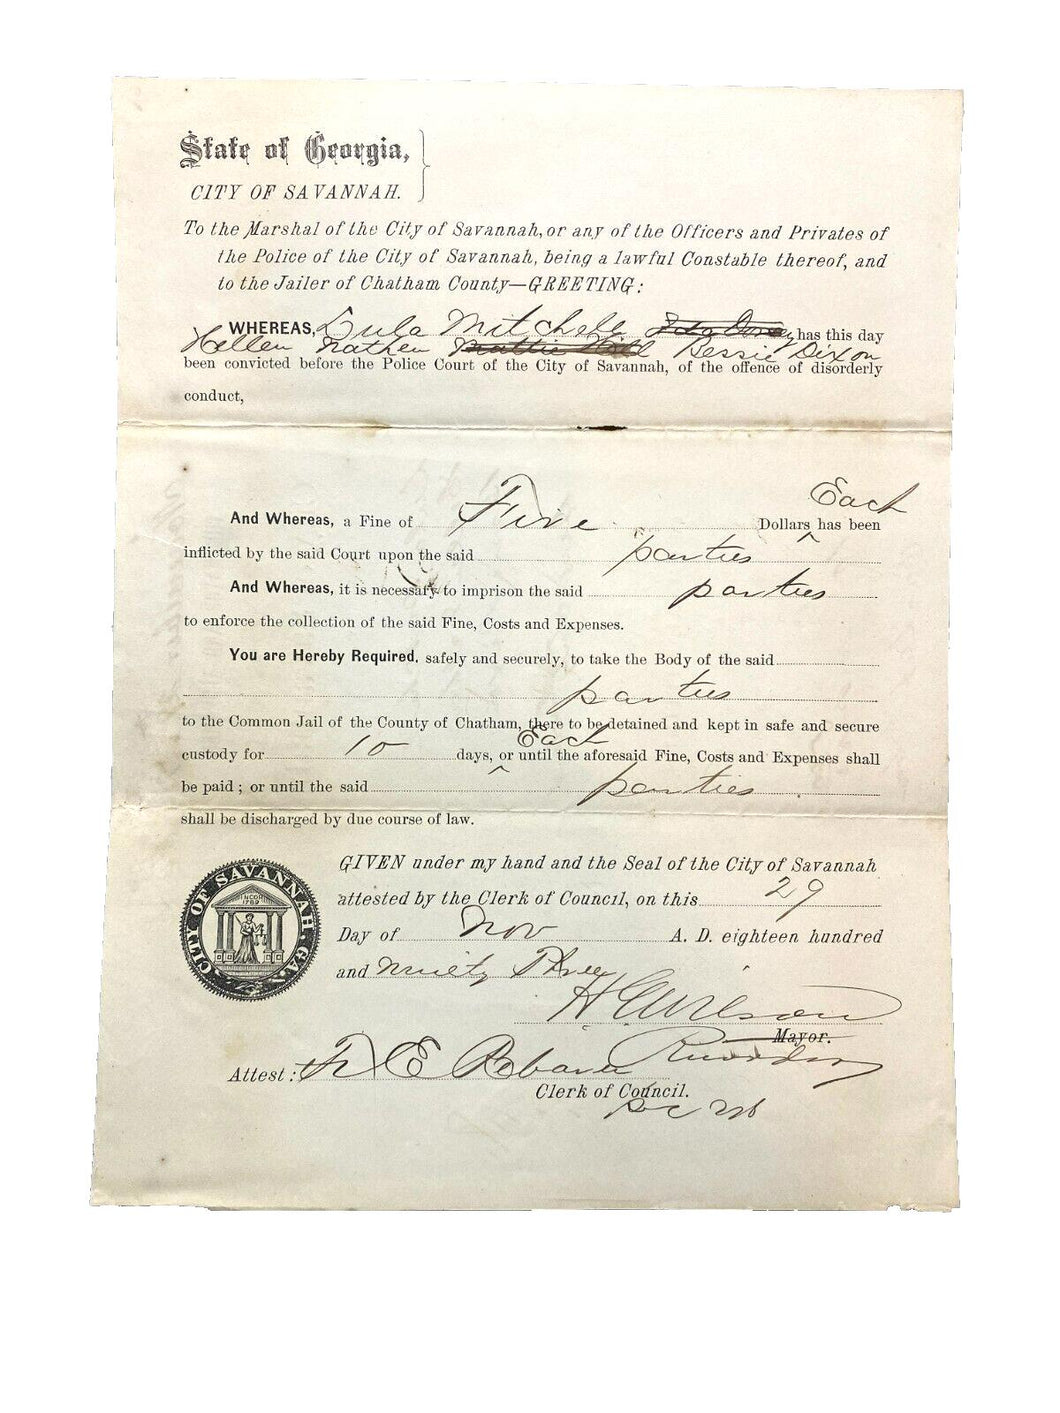 State of Georgia,
CITY OF SAVANNAH.
To the Marshal of the City of Savannah, or any of the Officers and Privates of
the Police of the City of Savannah, being a lawful Constable thereof, and
to the Jailer of Chatham County—GREETING:
WHEREAS, Lula Mitchell has this day
Hellen Nathen Bessie Dixon
been convicted before the Police Court of the City of Savannah, of the offence of disorderly
conduct,
Each
And Whereas, a Fine of Five Dollars has been
inflicted by the said Court upon the said parties
And Whereas, it is necessary to imprison the said parties
to enforce the collection of the said Fine, Costs and Expenses.
You are Hereby Required, safely and securely, to take the Body of the said
parties
to the Common Jail of the County of Chatham, there to be detained and kept in safe and secure
Each
custody for 10 days, or until the aforesaid Fine, Costs and Expenses shall
be paid; or until the said parties
shall be discharged by due course of law.
CITY OF SAVANNAH, GA.
INCOR
1789
GIVEN under my hand and the Seal of the City of Savannah
attested by the Clerk of Council, on this 29
Day of Nov A. D. eighteen hundred
and ninety Three
Mayor.
Attest:
Clerk of Council.